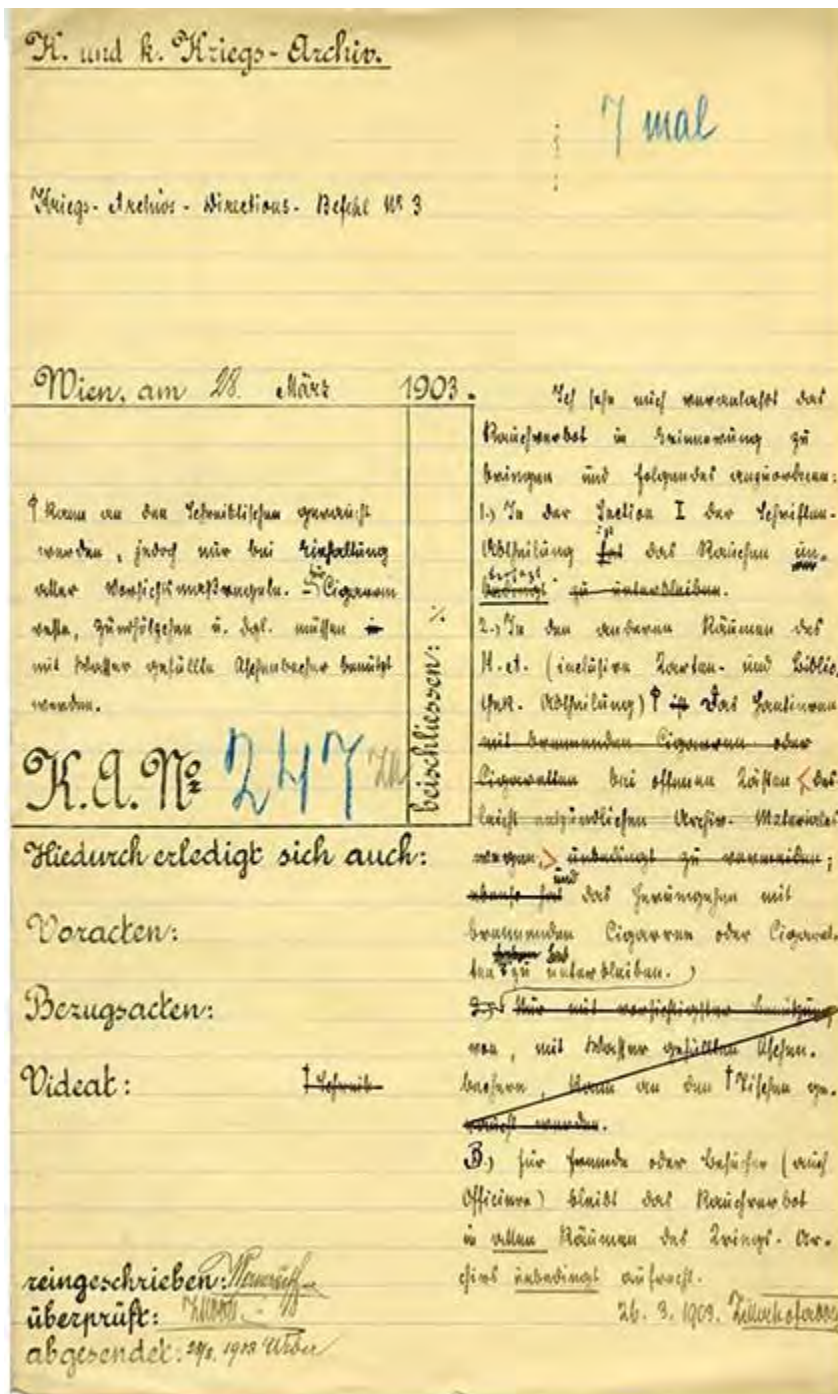 K. und k. Kriegs-Archiv.
7 mal
Kriegs-Archivs-Directions-Befehl Nr 3
Wien, am 28. März 1903.
↑ kann an den Schreibtischen geraucht
werden, jedoch nur bei Einhaltung
aller Vorsichtsmaßregeln. Für Cigarren
reste, Zündhölzchen u. dgl. müssen in
mit Wasser gefüllte Aschenbecher benützt
werden.
beischliessen: %
K.A.Nº 247
Hiedurch erledigt sich auch:
Voracten:
Bezugsacten:
Videat:
† Schreib-
reingeschrieben:
überprüft:
abgesendet: 1903
Ich sehe mich veranlaßt das
Rauchverbot in Erinnerung zu
bringen und folgendes anzuordnen:
1.) In der Section I der Schriften-
Abtheilung hat ist das Rauchen un-
bedingt versagt zu unterbleiben.
2.) In den anderen Räumen des
K.A. (inclusive Karten- und Biblio-
thek-Abtheilung) ↑ ist Das Hantieren
mit brennenden Cigarren oder
Cigaretten bei offenen Kästen des
leicht entzündlichen Archiv-Materiales
wegen, unbedingt zu vermeiden;
ebenso hat und das Herumgehen mit
brennenden Cigarren oder Cigaret-
ten hat zu unterbleiben.
3.) Nur mit vorsichtigster Benützung
von, mit Wasser gefüllten Aschen-
bechern, kann an den † Tischen ge-
raucht werden.
3.) Für Fremde oder Besucher (auch
Officiere) bleibt das Rauchverbot
in allen Räumen des Kriegs-Ar-
chivs unbedingt aufrecht.
26. 3. 1903.